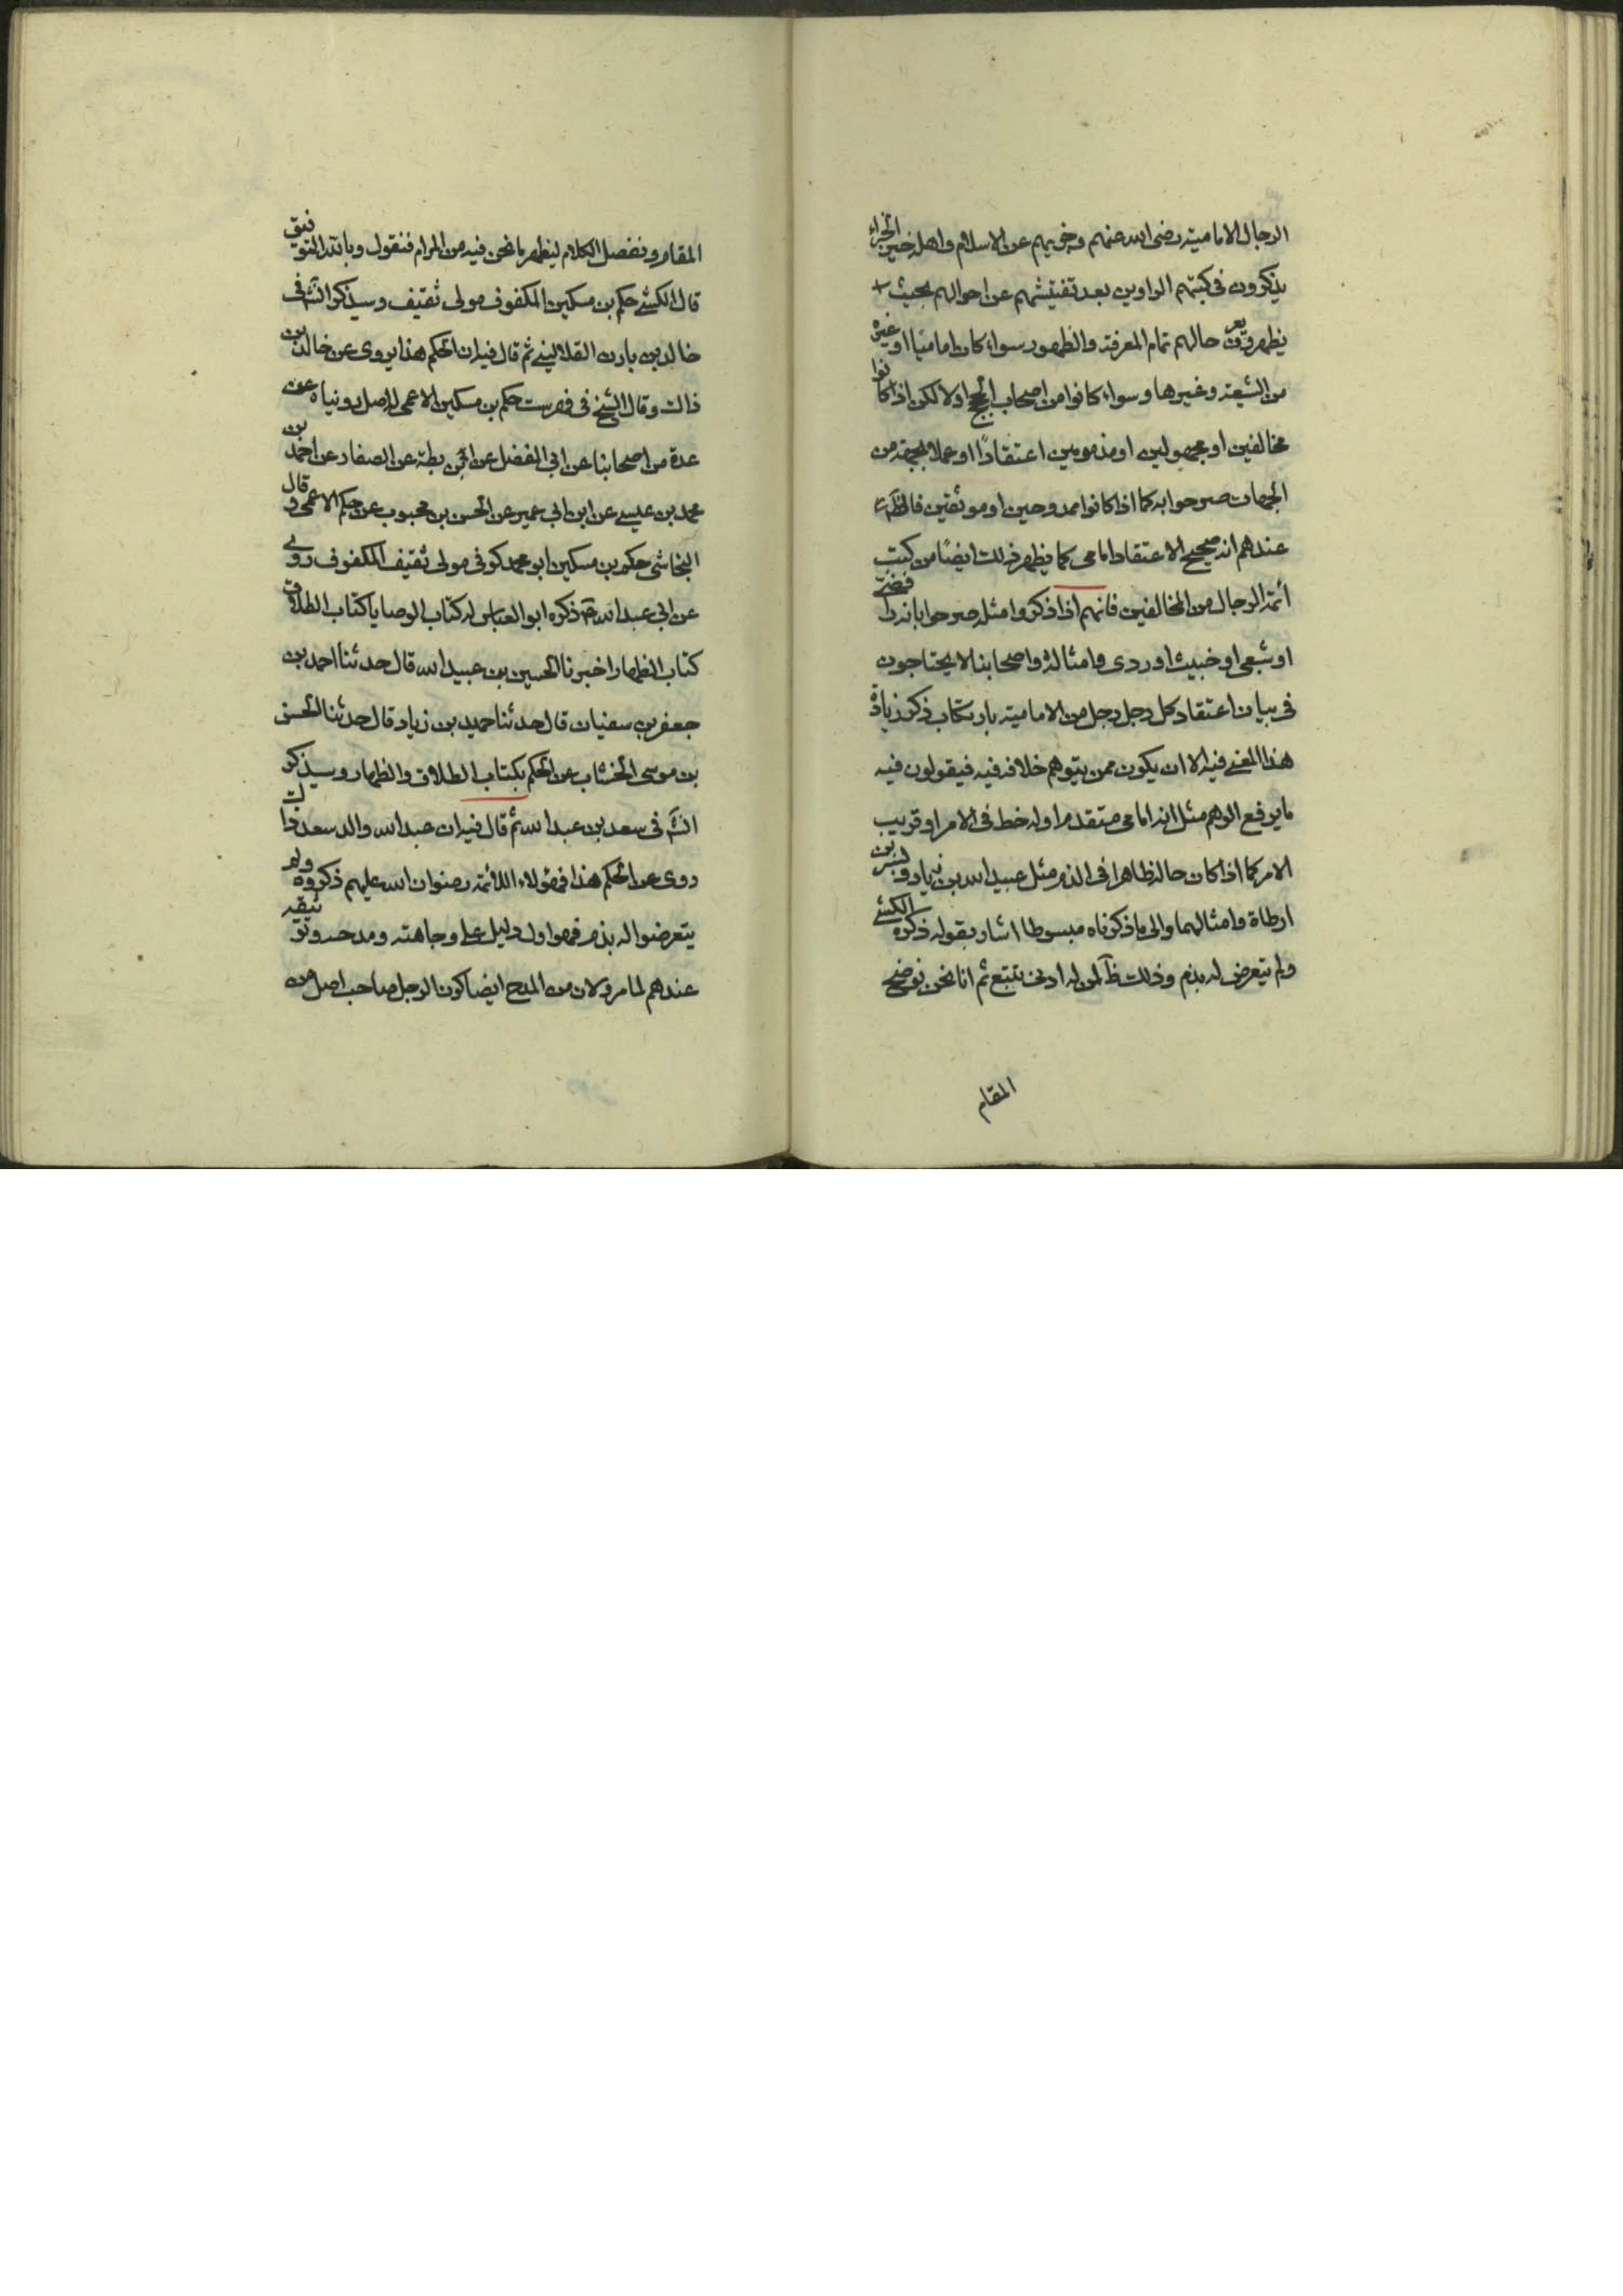 الرجال الامامية رضى الله عنهم وجزيهم عن الاسلام واهله خير الجزاء
يذكرون فى كتبهم الراوين بعد تفتيشهم عن احوالهم بحيث
يظهر ويعرف حالهم تمام المعرفة والظهور سواء كان اماميا او غيره
من الشيعة وغيرها وسواء كانوا من اصحاب الحجج اولا لكن اذا كانوا
مخالفين او مجهولين او مذمومين اعتقادًا او عملا بجهة من
الجهات صرحوا به كما اذا كانوا ممدوحين او موثقين فالظم
عندهم انه صحيح الاعتقاد امامى كما يظهر ذلك ايضًا من كتب
أئمة الرجال من المخالفين فانهم اذا ذكروا مثله صرحوا بانه رافضى
او شيعى او خبيث او ردى وامثاله واصحابنا لا يحتاجون
فى بيان اعتقاد كل رجل رجل من الامامية بارتكاب ذكر زيادة
هذا المعنى فيه الا ان يكون ممن يتوهم خلافه فيه فيقولون فيه
ما يرفع الوهم مثل انه امامى متقدم اوله خط فى الامر او قريب
الامر كما اذا كان حاله ظاهرا فى الذم مثل عبيد الله بن زياد وبسر بن
ارطاة وامثالهما والى ما ذكرناه مبسوطا اشار بقوله ذكره الكشى
ولم يتعرض له بذم وذلك ظ لمن له ادنى تتبع ثم انا نحن نوضح
المقام
المقام ونفصل الكلام ليظهر ما نحن فيه من المرام فنقول وبالله التوفيق
قال الكشى حكم بن مسكين المكفوف مولى ثقيف وسيذكر الش فى
خالد بن بادن القلانسى ثم قال فيه ان الحكم هذا يروى عن خالد بن
ذات وقال الشيخ فى فهرست حكم بن مسكين الاعمى له اصل رويناه عن
عدة من اصحابنا عن ابى المفضل عن ابن بطة عن الصفار عن احمد بن
محمد بن عيسى عن ابن ابى عمير عن الحسن بن محبوب عن حكم الاعمى وقال
النجاشى حكم بن مسكين ابو محمد كوفى مولى ثقيف المكفوف روى
عن ابى عبد الله ع ذكره ابو العباس له كتاب الوصايا كتاب الطلاق
كتاب الظهار اخبرنا الحسين بن عبيد الله قال حدثنا احمد بن
جعفر بن سفيان قال حدثنا حميد بن زياد قال حدثنا الحسن
بن موسى الخشاب عن الحكم بكتاب الطلاق والظهار وسيذكر
الش فى سعد بن عبد الله ثم قال فيه ان عبد الله والد سعد ذلك
روى عن الحكم هذا فهؤلاء الائمة رضوان الله عليهم ذكروه ولم
يتعرضوا له بذم فهو اول دليل على وجاهته ومدحه وتوثيقه
عندهم لما مر ولان من المدح ايضا كون الرجل صاحب اصل من